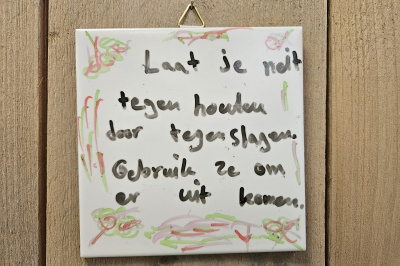 Laat je noit
tegen houden
door tegenslagen.
Gebruik ze om
er uit komen.